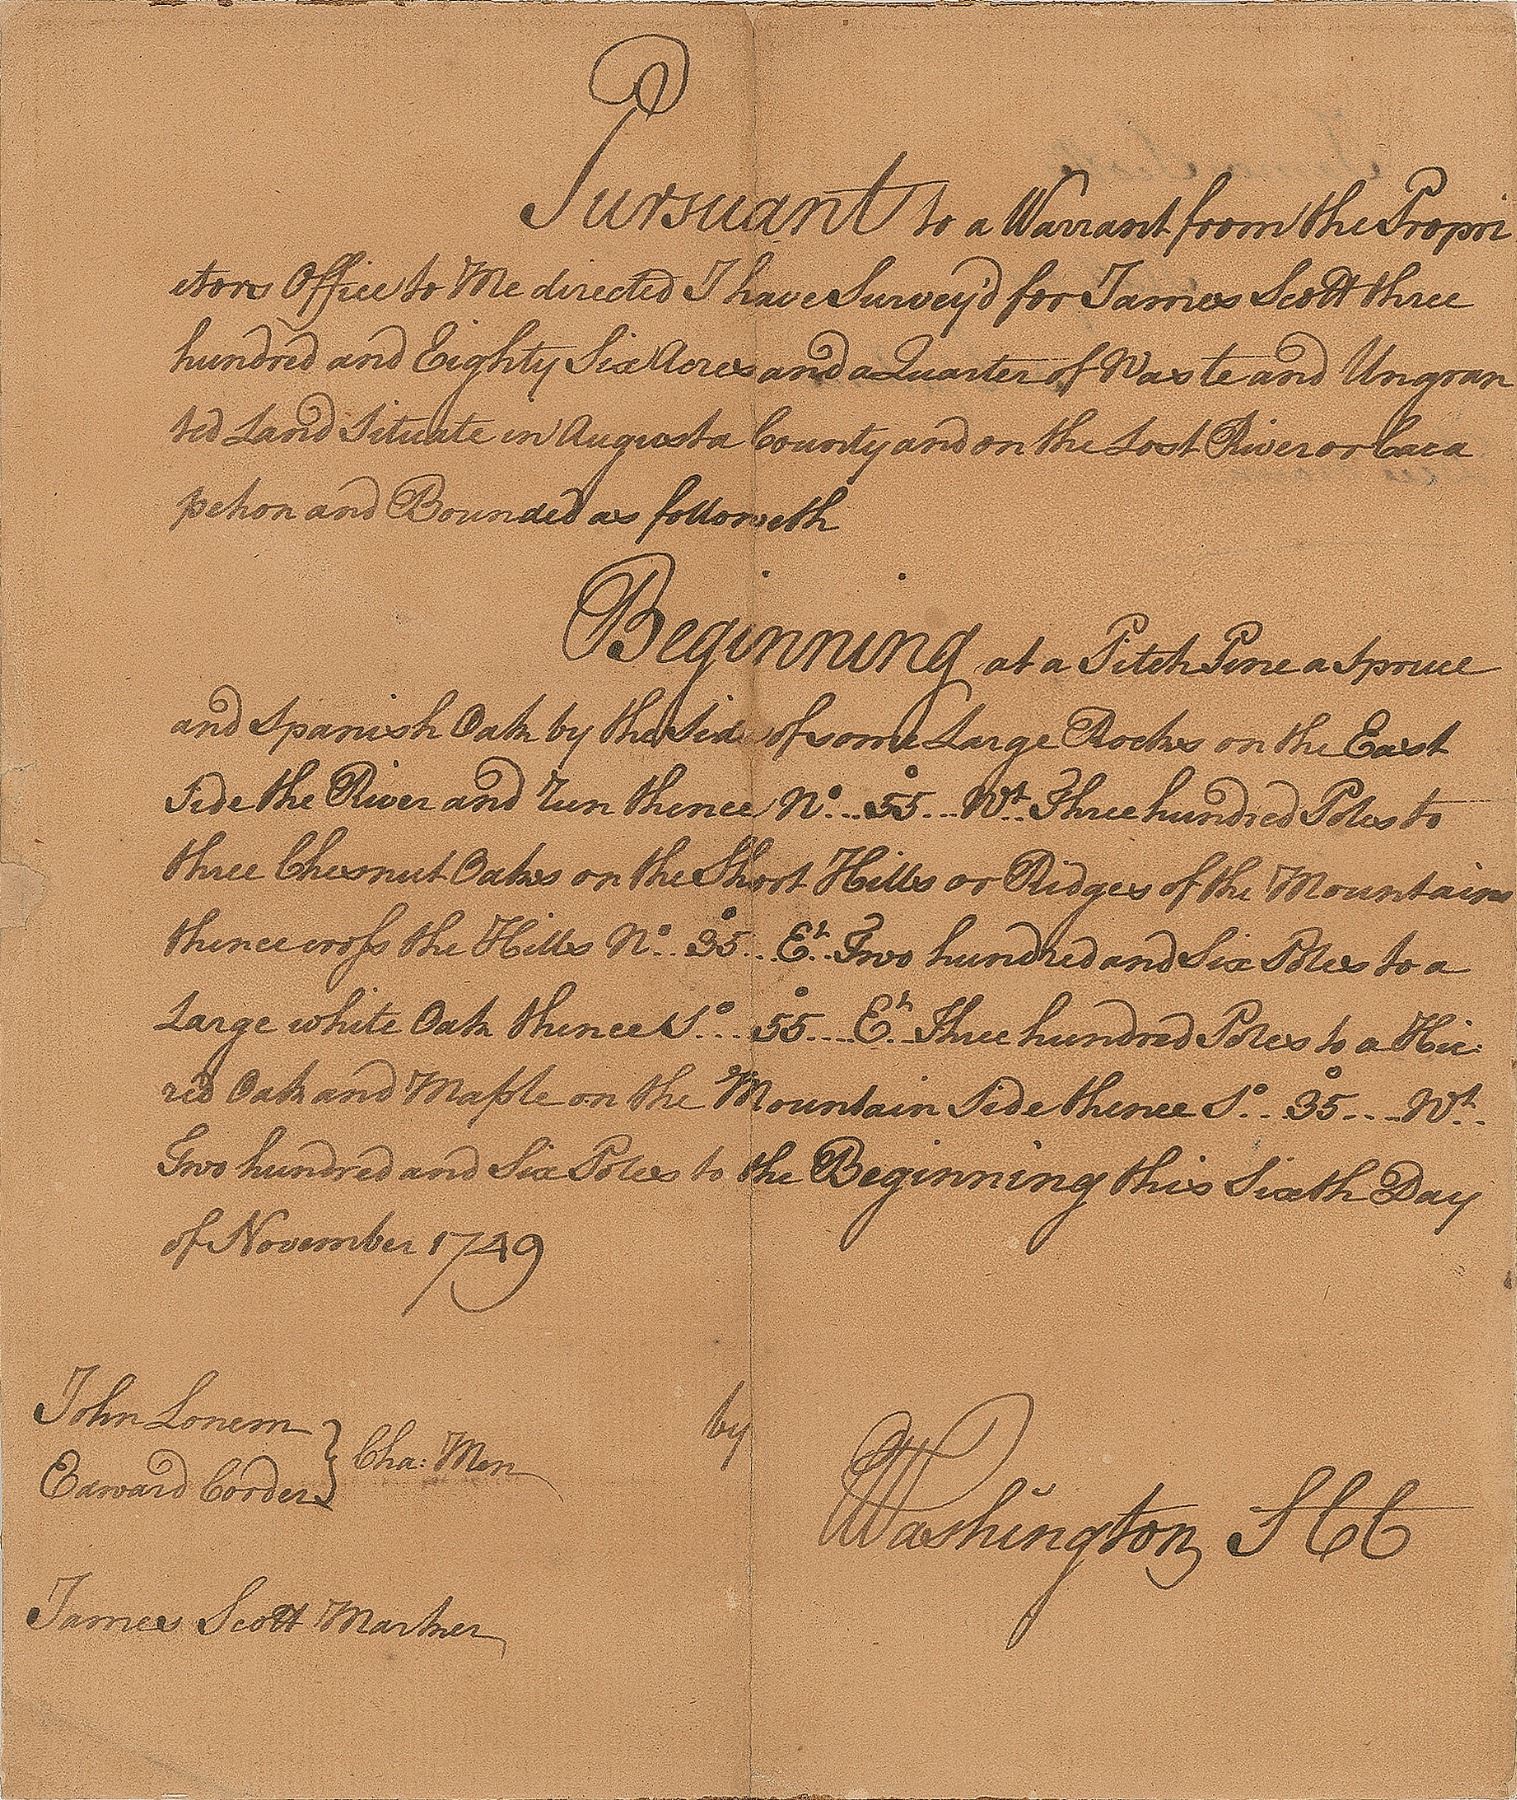 Pursuant to a Warrant from the Propri
etors Office to Me directed I have Survey'd for James Scott three
hundred and Eighty Six Acres and a Quarter of Waste and Ungran
ted Land Situate in Augusta County and on the Lost River or Caca
pehon and Bounded as followeth
Beginning at a Pitch Pine a Spruce
and Spanish Oak by the Side of some Large Rocks on the East
Side the River and run thence No... 55... Wt. Three hundred Poles to
three Chesnut Oaks on the Short Hills or Ridges of the Mountains
thence cross the Hills No.. 35... Et. Two hundred and Six Poles to a
Large white Oak thence So... 55... Et. Three hundred Poles to a Hic:
red Oak and Maple on the Mountain Side thence So... 35.... Wt..
Two hundred and Six Poles to the Beginning this Sixth Day
of November 1749
John Lonem
Edward Corder } Cha: Men
by
Washington SCC
James Scott Marker